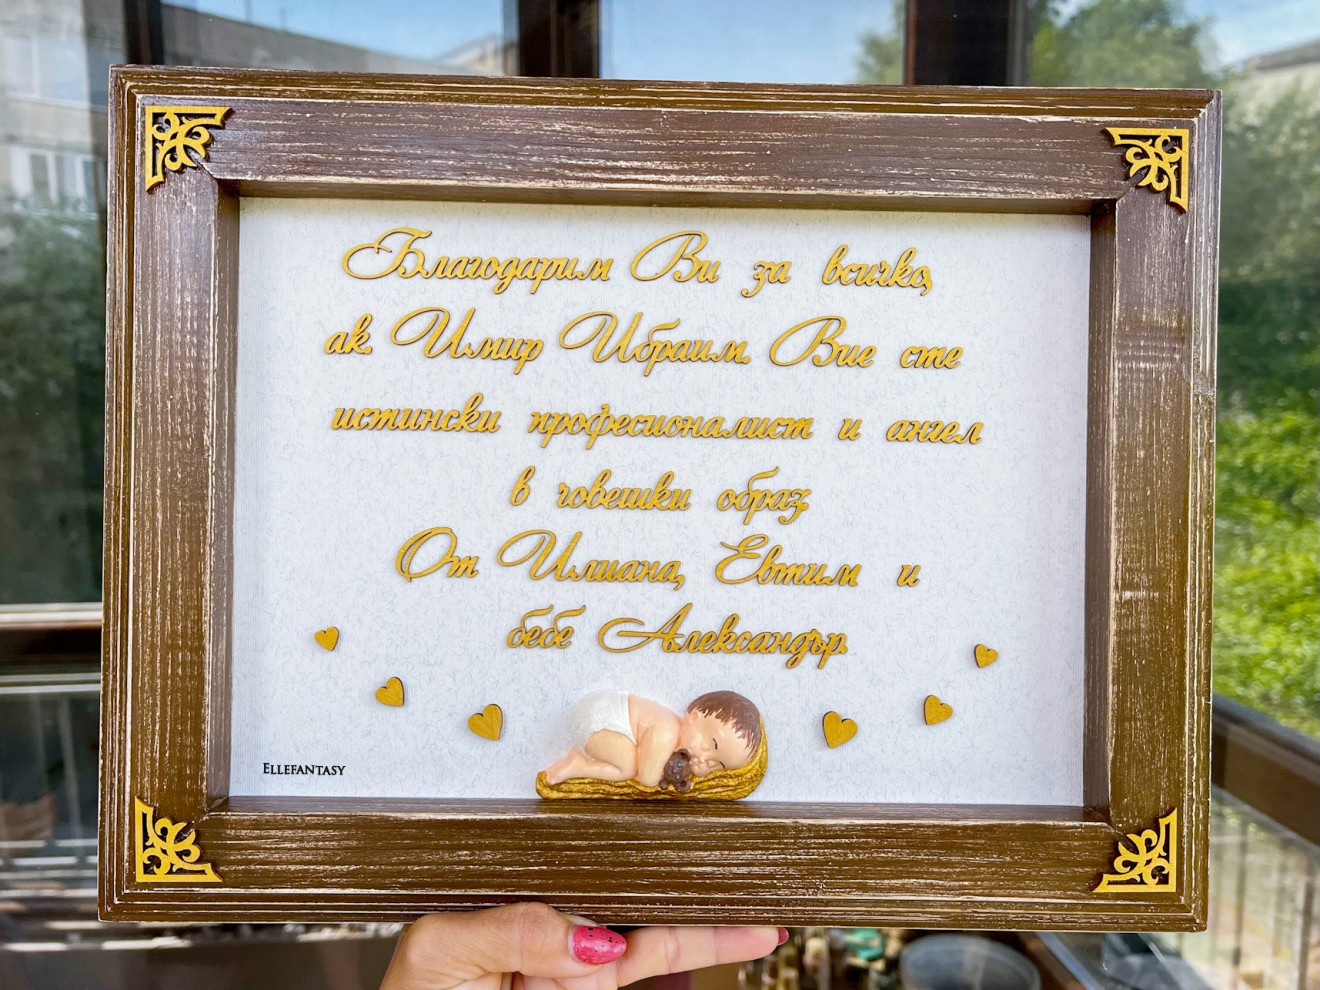 Благодарим Ви за всичко,
ак. Имир Ибраим. Вие сте
истински професионалист и ангел
в човешки образ.
От Илиана, Евтим и
бебе Александър.
ELLEFANTASY